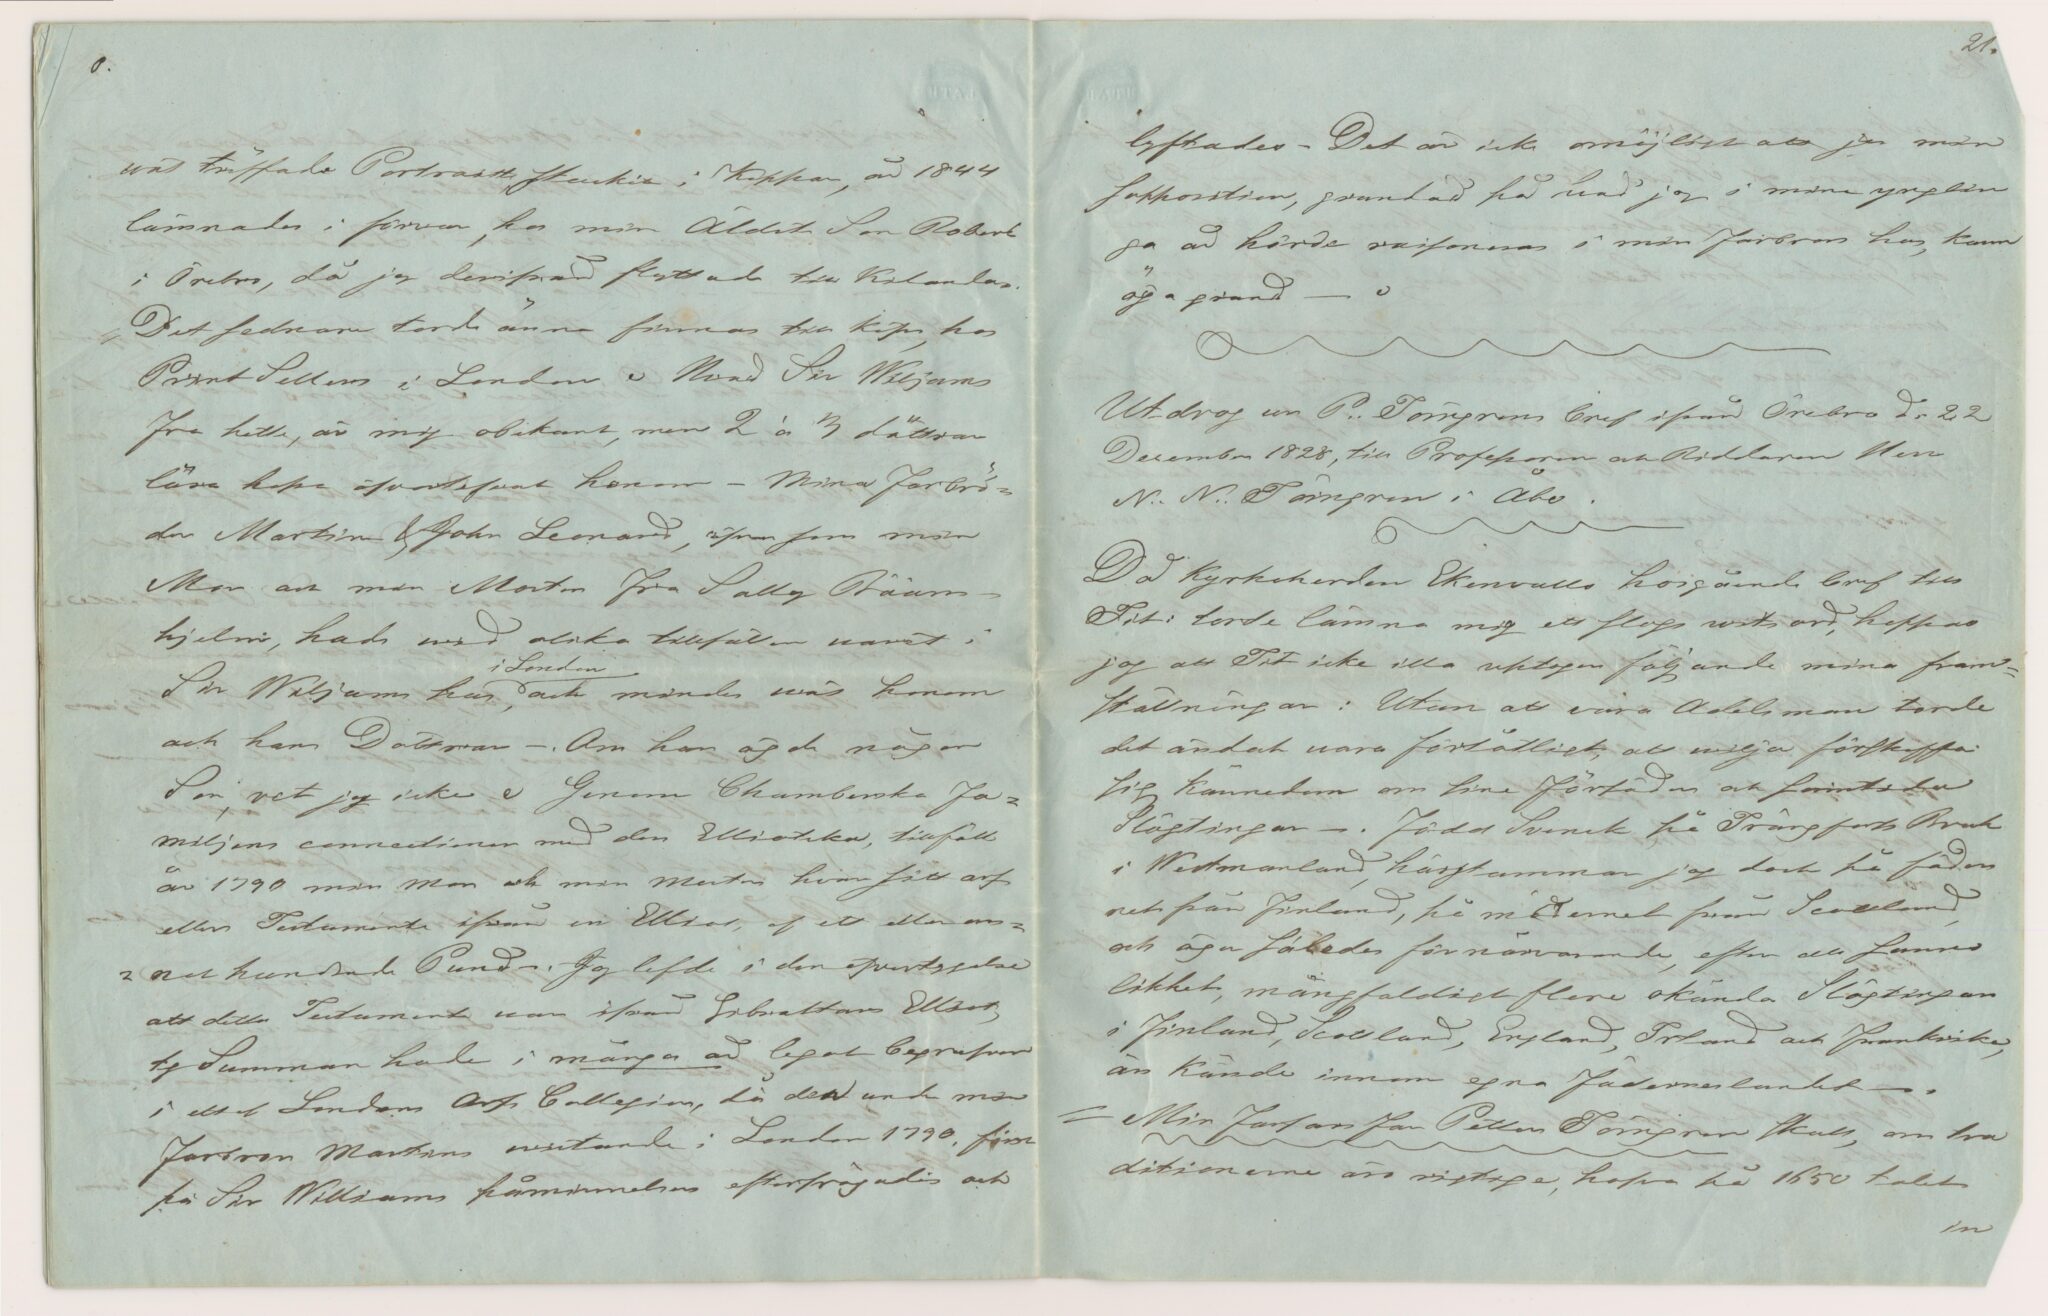 0.
wäl träffade Portraitt, stuckit i Koppar, år 1844
lämnades i förvar, hos min Äldste Son Robert
i Örebro, då jag derifrån flyttade till Kilanda.
Det sednare torde ännu finnas till köps, hos
Print Sellers i London. Hvad Sir Wiljams
Fru hette, är mig obekant, men 2 á 3 döttrar
lära hafva öfverlefvat honom – Mina Farbrö=
der Martin & John Leonard, äfven som min
Mor och min Moster Fru Sally Rääms-
hjelm, hade wid olika tillfällen varit i
Sir Wiljams hus, i London och mindes wäl honom
och hans Döttrar –. Om han ägde någon
Son, vet jag icke. Genom Chamberska Fa=
miljens connectioner med den Elliotska, tillföll
år 1790 min Mor och min Moster hvar sitt arf
eller Testamente ifrån en Elliot, af ett eller an=
nat hundrade Pund –. Jag lefde i den öfvertygelse
att detta Testamente var ifrån Gibraltars Elliot,
ty Summan hade i många år legat begrafven
i ett af Londons Arfs Collegier, då den under min
Farbror Martins wistande i London 1790, först
på Sir Williams påminnelser efterfrågades och
21.
lyftades – Det är icke omöjligt att ju min
supposition, grundad på hvad jag i mina ynglin
ga år hörde raisoneras i min Farbrors hus, kann
äga grund —
Utdrag ur P.. Törngrens bref ifrån Örebro d. 22
December 1828, till Professoren och Riddaren Herr
N.. N.. Törngren i Åbo.
Då Kyrkoherden Ekenvalls hosgående bref till
Tit: torde lämna mig ett slags witsord, hoppas
jag att Tit icke illa uptager följande mina fram=
ställningar: Utan att vara Adelsman torde
det ändock vara förlåtligt, att wilja förskaffa
sig kännedom om sine Förfäder och
Slägtingar –. Född Svensk, på Trångfors Bruk
i Westmanland, härstammar jag dock på fäder
net från Finland, på mödernet från Scottland,
och äger således för närvarande, efter all sanno
likhet, mångfaldigt flere okända Slägtingar
i Finland, Scottland, England, Irland och Frankrike,
än kände innom egna Fäderneslandet –.
= Min Farfars Far Petter Törngren skall, om tra
ditionerne äro riktige, hafva på 1650 talet
in